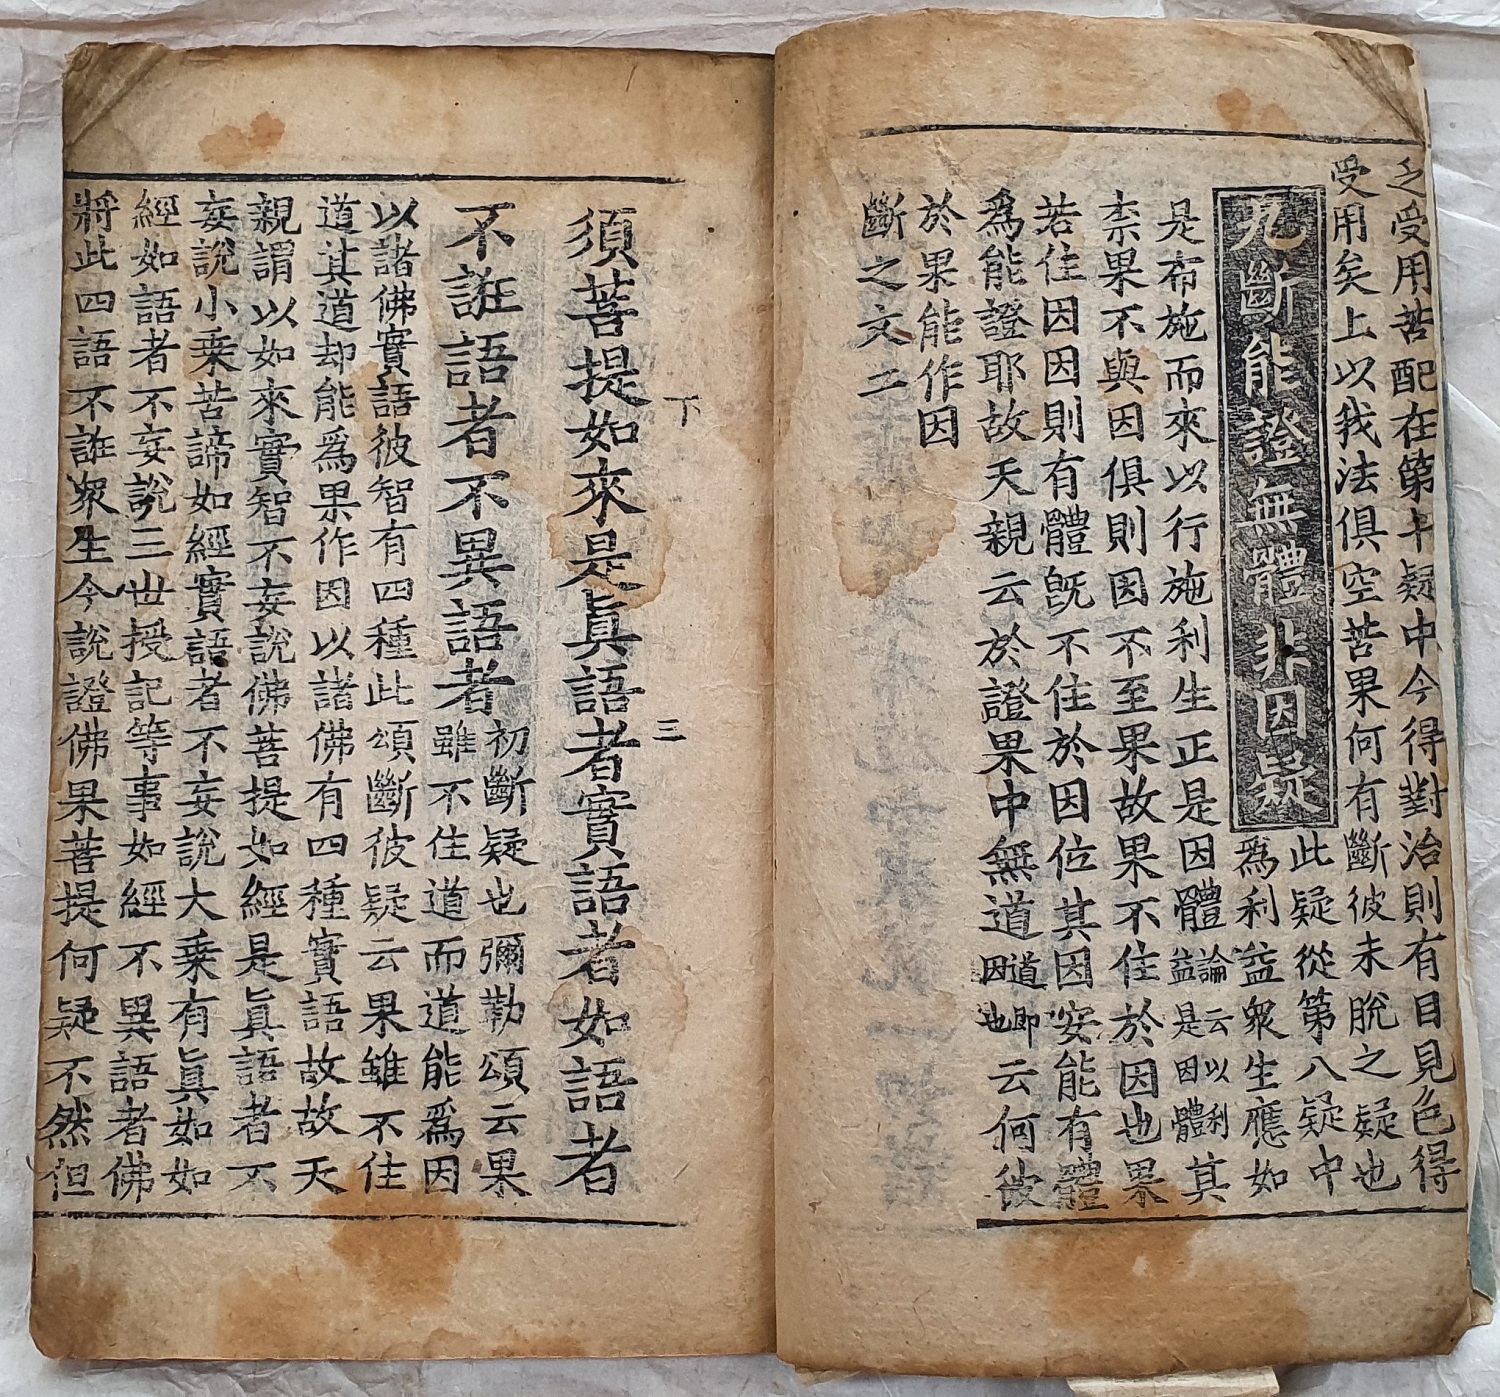 乏受用苦配在第十疑中今得對治則有目見色得
受用矣上以我法俱空苦果何有斷彼未脫之疑也
九斷能證無體非因疑
此疑從第八疑中
爲利益衆生應如
是布施而來以行施利生正是因體
論云以利
益是因體
其
柰果不與因俱則因不至果故果不住於因也果
若住因因則有體旣不住於因位其因安能有體
爲能證耶故天親云於證果中無道
道即
因也
云何彼
於果能作因
斷之文二
下
三
須菩提如來是眞語者實語者如語者
不誑語者不異語者
初斷疑也彌勒頌云果
雖不住道而道能爲因
以諸佛實語彼智有四種此頌斷彼疑云果雖不住
道其道却能爲果作因以諸佛有四種實語故故天
親謂以如來實智不妄說佛菩提如經是眞語者不
妄說小乗苦諦如經實語者不妄說大乗有眞如如
經如語者不妄說三世授記等事如經不異語者佛
將此四語不誑衆生今說證佛果菩提何疑不然但